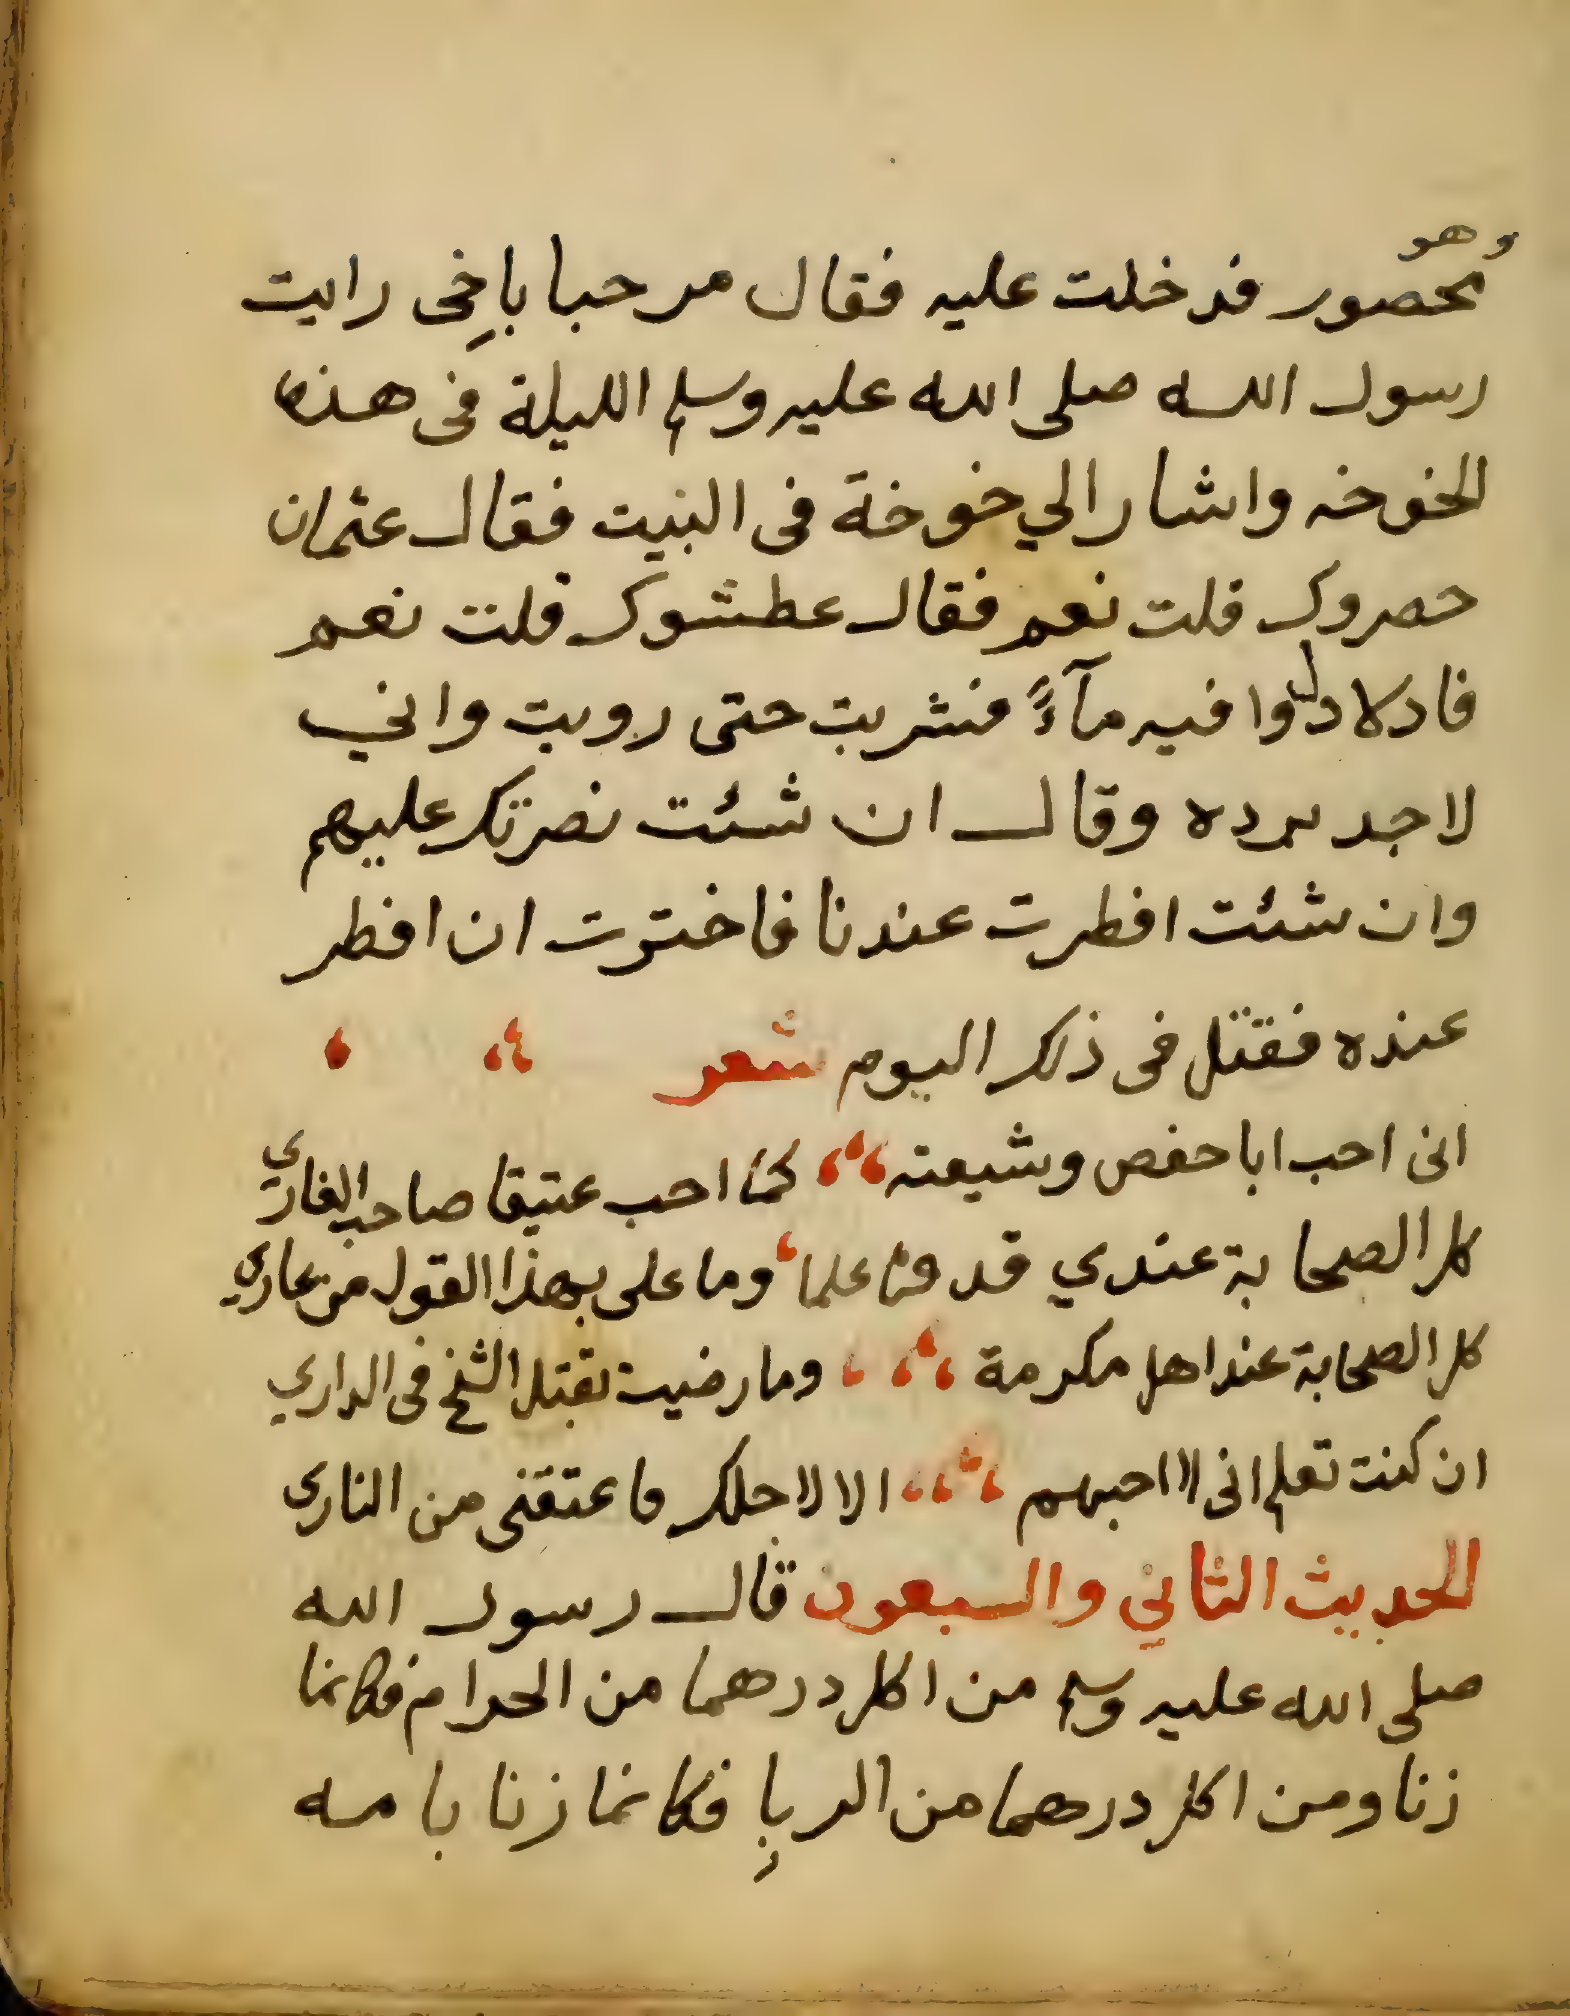 وهو
محصور فدخلت عليه فقال مرحبا باخى رايت
رسول الله صلى الله عليه وسلم الليلة فى هذه
الخوخه واشار الي خوخة فى البيت فقال عثمان
حصروك قلت نعم فقال عطشوك قلت نعم
فادلا دلوا فيه مآءً فشربت حتى رويت واني
لاجد برده وقال ان شئت نصرتك عليهم
وان شئت افطرت عندنا فاخترت ان افطر
عنده فقتل فى ذلك اليوم شعر
انى احب ابا حفص وشيعته كما احب عتيقا صاحب الغاري
كل الصحابة عندي قد علما وما على بهذا القول من عاري
كل الصحابة عند اهل مكرمة وما رضيت بقتل الشيخ فى الداري
ان كنت تعلم انى لا احبهم الا لاجلك فاعتقنى من الناري
الحديث الثاني والسبعون قال رسول الله
صلى الله عليه وسلم من اكل درهما من الحرام فكانما
زنا ومن اكل درهما من الربا فكانما زنا بامه